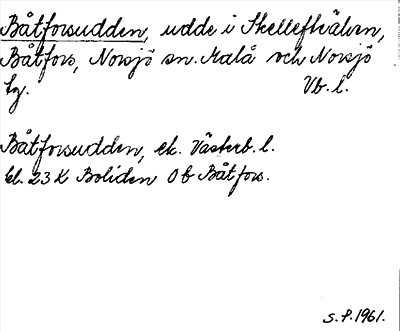 Båtforsudden, udde i Skellefteälven,
Båtfors, Norsjö sn. Malå och Norsjö
tg. Vb. l.
Båtforsudden, ek. Västerb. l.
bl. 23 K Boliden 0 b Båtfors.
S. P. 1961.